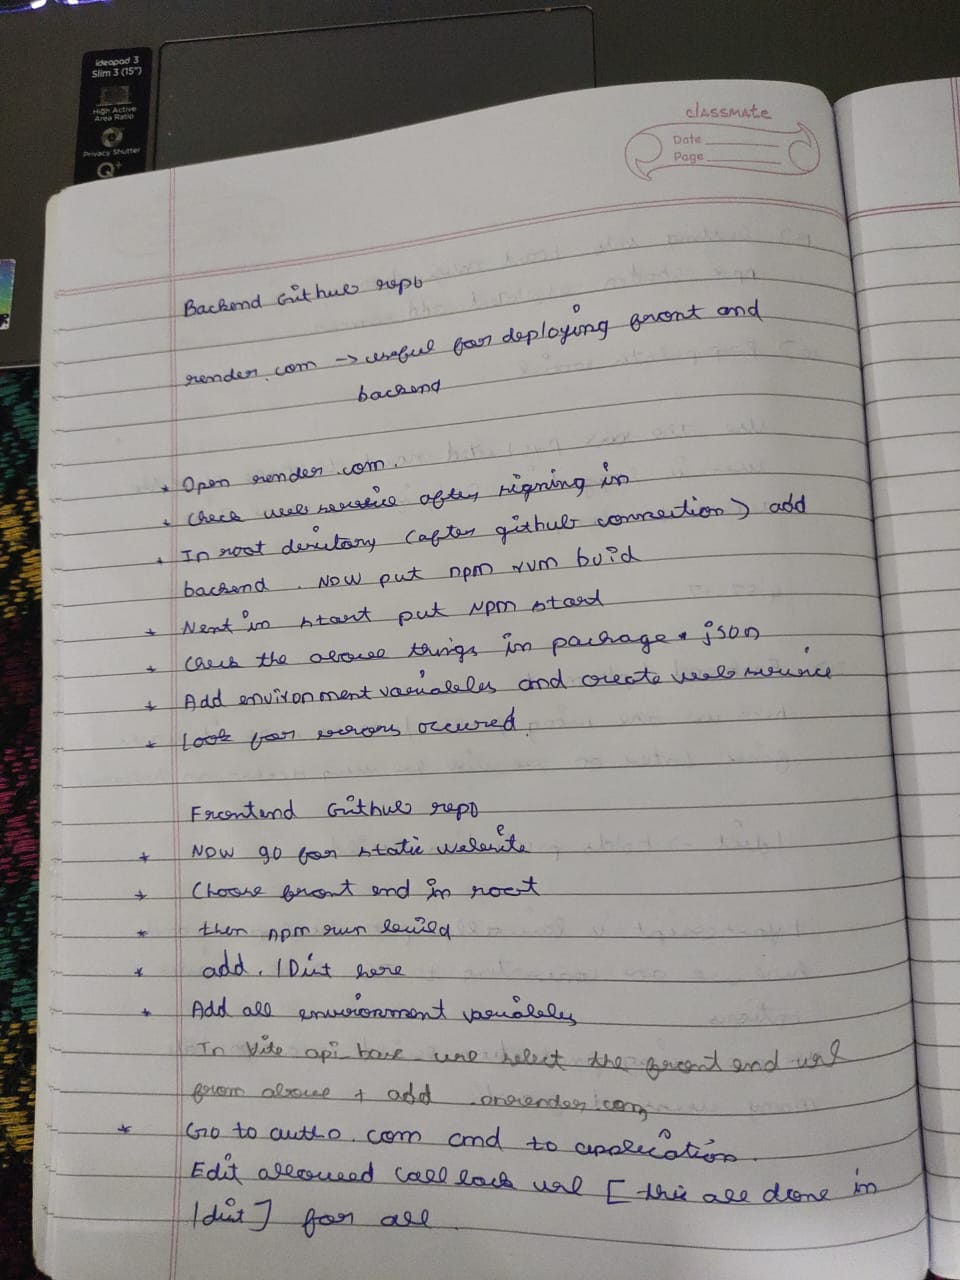 ideapad 3
Slim 3 (15")
High Active
Area Ratio
Privacy Shutter
Q+
classmate
Date
Page
Backend Github repo
render.com → useful for deploying front and
backend
* Open render.com.
* Check web service after signing in
* In root diritory (after github connection) add
backend. Now put npm rum buid
* Next in start put Npm start
* Check the above things in package.json
* Add environment variables and create web service
* Look for errors occured.
Frontend Github repo
* Now go for static website
* Choose front end in root
* then npm run build
* add. /Dist here
* Add all environment variables
In Vite api base url select the front end url
from above + add .onrender.com
* Go to auth0.com and to application.
Edit allowed call back url [this all done in
/dist] for all.